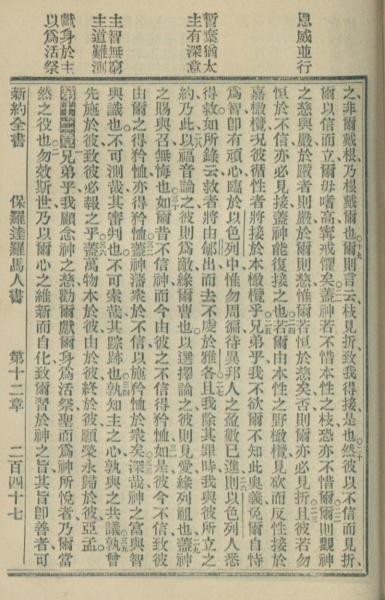 恩威並行
暫棄猶太
主有深意
主智無窮
主道難測
獻身於主
以爲活祭
之非爾戴根乃根戴爾也爾則言云枝見折致我得接是也然彼以不信而見折
爾以信而立爾毋嗜高寧戒懼矣蓋神若不惜本性之枝恐亦不惜爾爾則觀神
之慈與嚴於嚴者則嚴於爾則慈惟爾若恒於慈矣否則爾亦必見折且彼若勿
恒於不信亦必見接蓋神能復接之也若爾由本性之野橄欖見砍而反性接於
嘉橄欖況彼循性者將接於本橄欖乎兄弟乎我不欲爾不知此奧義免爾自恃
爲智卽有頑心臨於以色列中惟勿周徧待異邦人之盈數已進則以色列人悉
得救如所錄云救者將由郇出而去不虔於雅各且我除其罪時我與彼所立之
約乃此以福音論之彼則爲敵緣爾曹也以選擇論之彼則見愛緣列祖也蓋神
之賜與召無悔也如爾昔不信神而今由彼之不信得矜恤如是彼今不信致彼
由爾之得矜恤亦得矜恤蓋神藩衆於不信以施矜恤於衆矣深哉神之富與智
與識也不可測哉其審判也不可索哉其踪跡也孰知主之心孰與之共議孰曾
先施於彼致彼必報之乎蓋萬物本於彼由於彼終於彼願榮永歸於彼亞孟
第十二章兄弟乎我願念神之慈勸爾獻爾身爲活祭聖而爲神所悅者乃爾當
然之役也勿效斯世乃以爾心之維新而自化致爾習於神之旨其旨卽善者可
新約全書 保羅達羅馬人書 第十二章 二百四十七